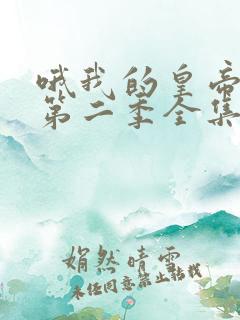 哦我的皇帝
第二季全集
娟然晴雪
未经同意禁止转载